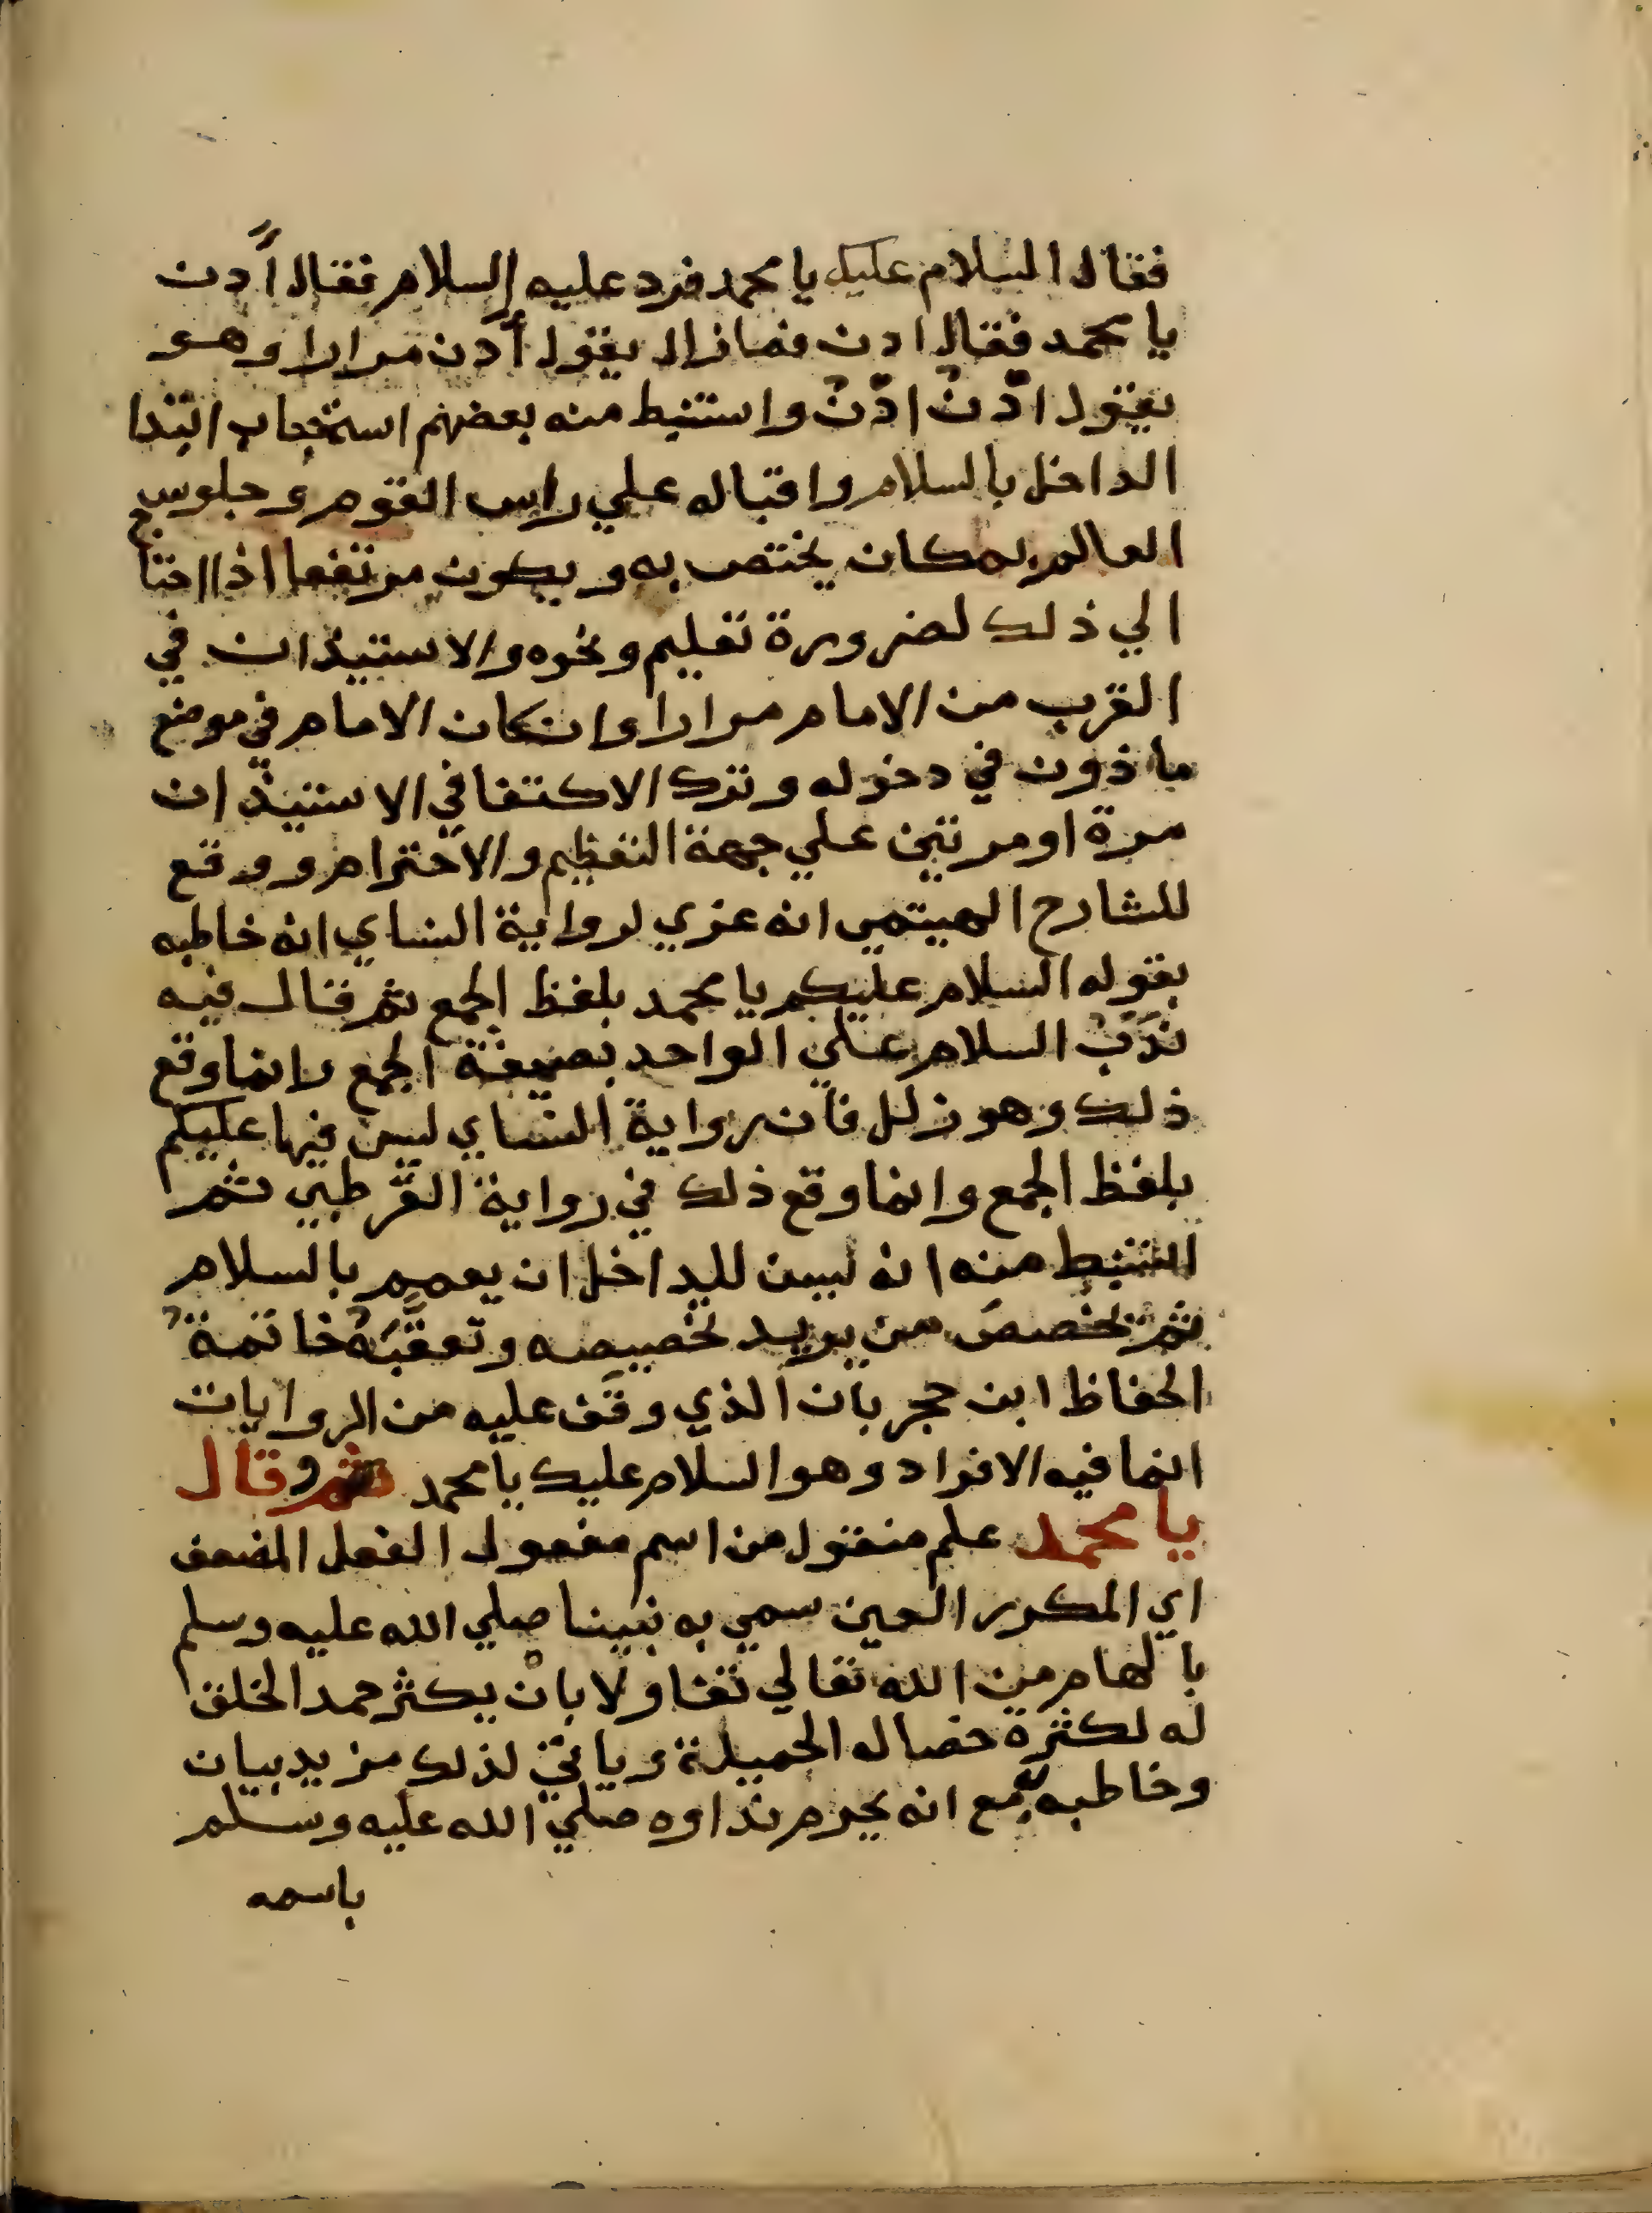 فقال السلام عليك يا محمد فرد عليه السلام فقال أدن
يا محمد فقال ادن فما زال يقول أدن مرارا وهو
يقول ادن ادن واستنبط منه بعضهم استحباب ابتدا
الداخل بالسلام واقباله علي راس القوم وجلوس
العالم بمكان يختص به ويكون مرتفعا اذا احتاج
الي ذلك لضرورة تعليم ونحوه والاستيذان في
القرب من الامام مرارا وان كان الامام في موضع
ماذون في دخوله وترك الاكتفا في الاستيذان
مرة او مرتين علي جهة التعظيم والاحترام ووقع
للشارح الهيتمي انه عزي لرواية النساي انه خاطبه
بقوله السلام عليكم يا محمد بلفظ الجمع ثم قال فيه
ندب السلام علي الواحد بصيغة الجمع وانما وقع
ذلك وهو زلل فان رواية النساي ليس فيها عليكم
بلفظ الجمع وانما وقع ذلك في رواية القرطبي ثم
استنبط منه انه ليسن للداخل ان يعمم بالسلام
ثم يخصص من يريد تخصيصه وتعقبه خاتمة
الحفاظ ابن حجر بان الذي وقف عليه من الروايات
انما فيه الافراد وهو السلام عليك يا محمد وقال
يا محمد علم منقول من اسم مفعول الفعل المضعف
اي المكرر العين سمي به نبينا صلي الله عليه وسلم
بالهام من الله تعالي تفاولا بان يكثر حمد الخلق
له لكثرة خصاله الجميلة وياتي لذلك مزيد بيان
وخاطبه بمع انه يحرم نداوه صلي الله عليه وسلم
باسمه